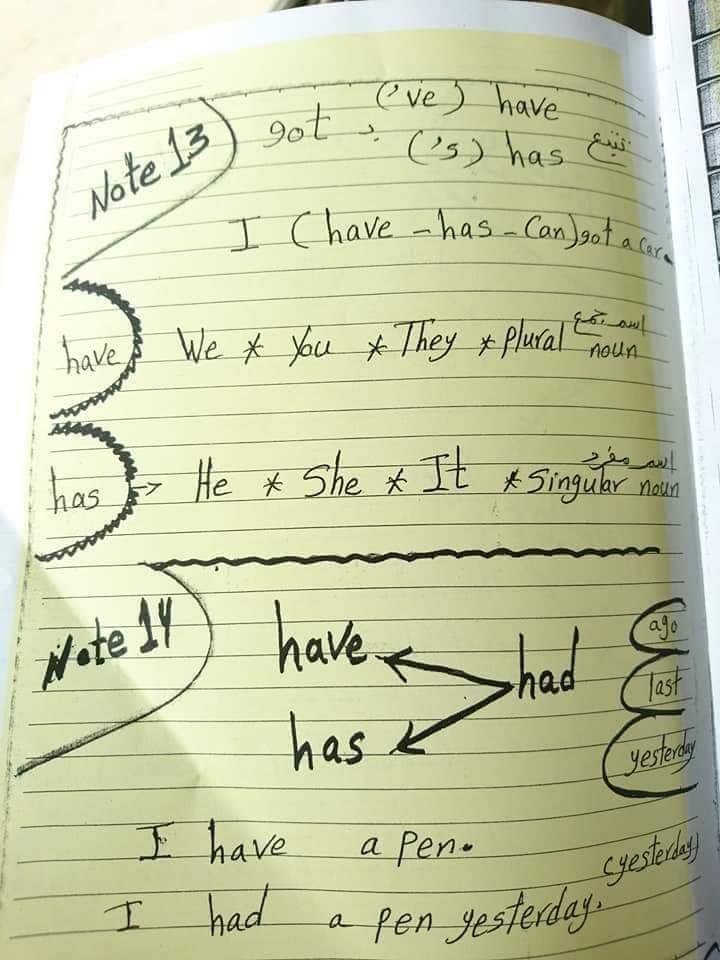 Note 13
('ve) have
got بـ ('s) has تتبع
I (have - has - Can) got a car.
have We * You * They * Plural noun اسم جمع
has → He * She * It * Singular noun اسم مفرد
Note 14
have
had
has
ago
last
yesterday
I have a pen.
(yesterday)
I had a pen yesterday.